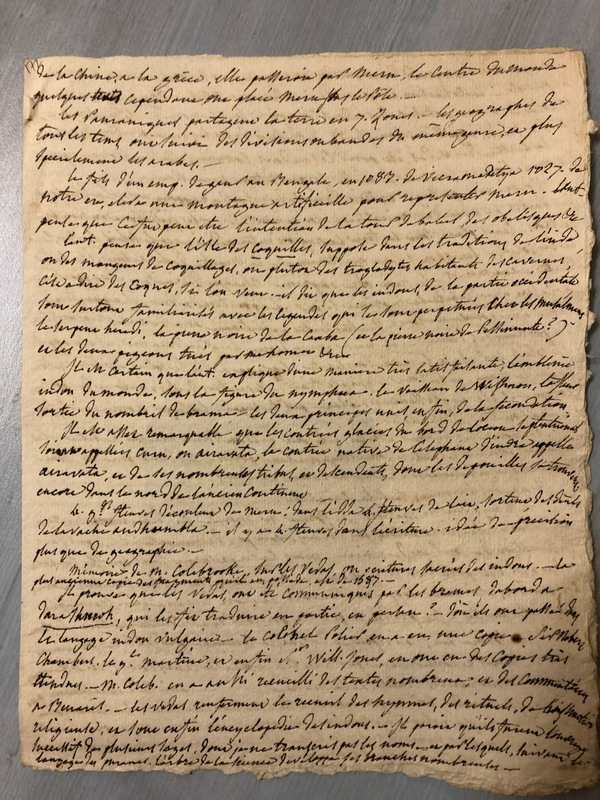 de la Chine, a la grèce, elle passeroit par Meru, le Centre du monde
quelques cependant ont placé Meru sous le Pole. —
les Pouraniques partagent la terre en 7. Zones. — les géographes de
tous les tems ont suivi des divisions ou bandes du même genre, et plus
specialement les arabes. —
le fils d'un emp. de gaur au Bengale, en 1083. de Vicramaditya 1027. de
notre ere, eleva une montagne artificielle pour representer Meru.
pense que ce fut peut être l'intention de la tour de babel des obelisques &c
pense que l'isle des Coquilles, suppose dans les traditions de l'inde
ou des mangeurs de Coquillages, ou plutot des troglodytes habitants des cavernes
c'est a dire des Coques, si l'on veut. — et dit que les indous, de la partie occidentale
sont surtout familiarisés avec les legendes qui se sont perpetuées chez les musulmans
le serpent la pierre noire de la Caaba (et la pierre noire de ?)
et les deux pigeons tués par mahomet &c.
Il est certain que explique d'une manière très satisfaisante, l'embleme
indou du monde, sous la figure du nymphaea. le de Wishnou, la fleur
sortie du nombril de brama — les deux principes unis enfin, de la fecondation.
Il est assez remarquable que les contrées glacées du bord de l'ocean septentrional
soient appellées curu, ou airavata, la contrée native de l'elephant d'indra appellé
airavata, et de ses nombreuses tribus, et descendants, dont les depouilles se trouvent
encore dans le nord de l'ancien Continent
4. gds fleuves decoulent de Meru; dans l'Edda 4. fleuves de lait, sortent des
de la vache audhumbla. — il y a 4. fleuves dans l'ecriture. idée de precision
plus que de geographie. —
Mémoire de M. Colebrooke, sur les Vedas, ou ecritures sacrées des indous. — la
plus ancienne copie des fragments qu'il en possede, est de 1587. —
Il prouve que les Vedas, ont été communiqués par les brames d'abord a
Dara Shucoh, qui les fit traduire en partie, en persan? — d'où ils ont passé dans
le langage indou vulgaire — le Colonel Polier en a eu une copie. Sir Robert
Chambers, le gl. martine, et enfin Will. Jones, en ont eu des Copies très
étendues. — M. Coleb. en a aussi recueilli des textes nombreux, et des Commentaires
a Benarès. — les vedas renferment le recueil des hymnes, des rituels, de
religieuse, et sont enfin l'encyclopedie des indous. — Il paroit qu'ils furent l'ouvrage
successif de plusieurs sages, dont je ne transcrirai pas les noms — et par lesquels, suivant le
langage des puranas, l'arbre de la science developpa ses branches nombreuses —